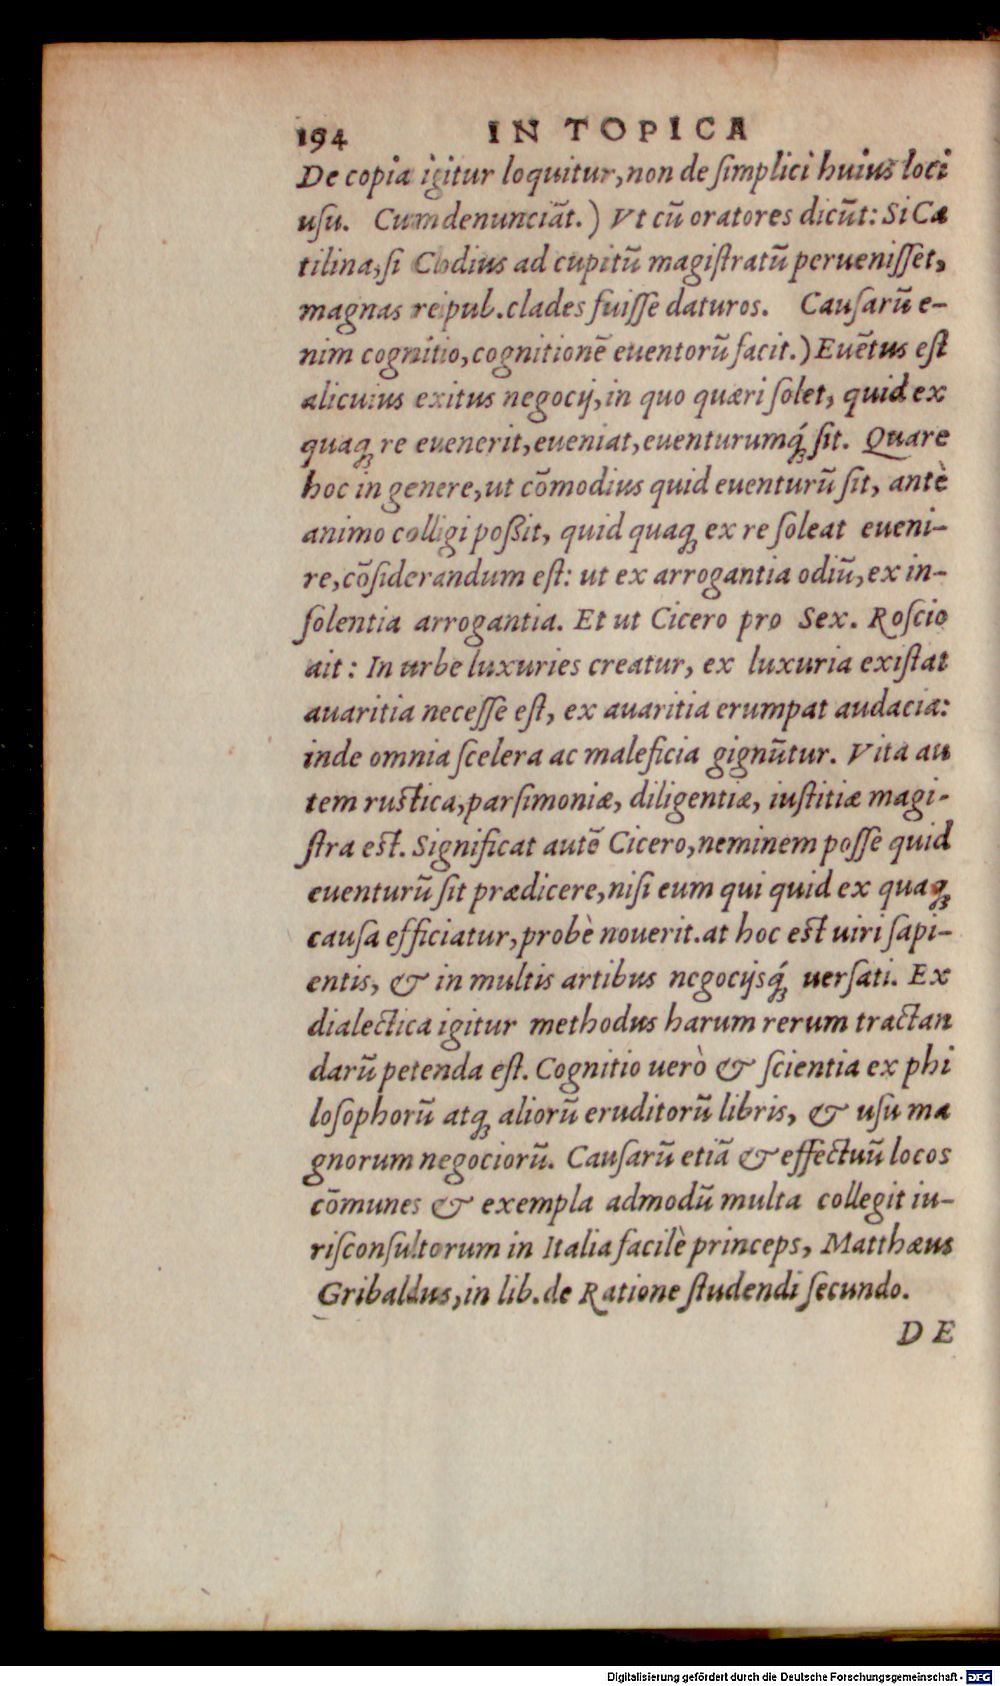 194 IN TOPICA
De copia igitur loquitur, non de ſimplici huius loci
uſu. Cum denunciãt.) Vt cũ oratores dicũt: Si Ca
tilina, ſi Clodius ad cupitũ magiſtratũ perueniſſet,
magnas reipub. clades fuiſſe daturos. Cauſarũ e-
nim cognitio, cognitionẽ euentorũ facit.) Euẽtus eſt
alicuius exitus negocij, in quo quæri ſolet, quid ex
quaq; re euenerit, eueniat, euenturumq́; ſit. Quare
hoc in genere, ut cõmodius quid euenturũ ſit, antè
animo colligi poßit, quid quaq; ex re ſoleat eueni-
re, cõſiderandum eſt: ut ex arrogantia odiũ, ex in-
ſolentia arrogantia. Et ut Cicero pro Sex. Roſcio
ait: In urbe luxuries creatur, ex luxuria exiſtat
auaritia neceſſe eſt, ex auaritia erumpat audacia:
inde omnia ſcelera ac maleficia gignũtur. Vita au
tem ruſtica, parſimoniæ, diligentiæ, iuſtitiæ magi-
ſtra eſt. Significat autẽ Cicero, neminem poſſe quid
euenturũ ſit prædicere, niſi eum qui quid ex quaq;
cauſa efficiatur, probè nouerit. at hoc eſt uiri ſapi-
entis, & in multis artibus negocijsq́; uerſati. Ex
dialectica igitur methodus harum rerum tractan
darũ petenda eſt. Cognitio uerò & ſcientia ex phi
loſophorũ atq; aliorũ eruditorũ libris, & uſu ma
gnorum negociorũ. Cauſarũ etiã & effectuũ locos
cõmunes & exempla admodũ multa collegit iu-
riſconſultorum in Italia facilè princeps, Matthæus
Gribaldus, in lib. de Ratione ſtudendi ſecundo.
DE
Digitalisierung gefördert durch die Deutsche Forschungsgemeinschaft - DFG